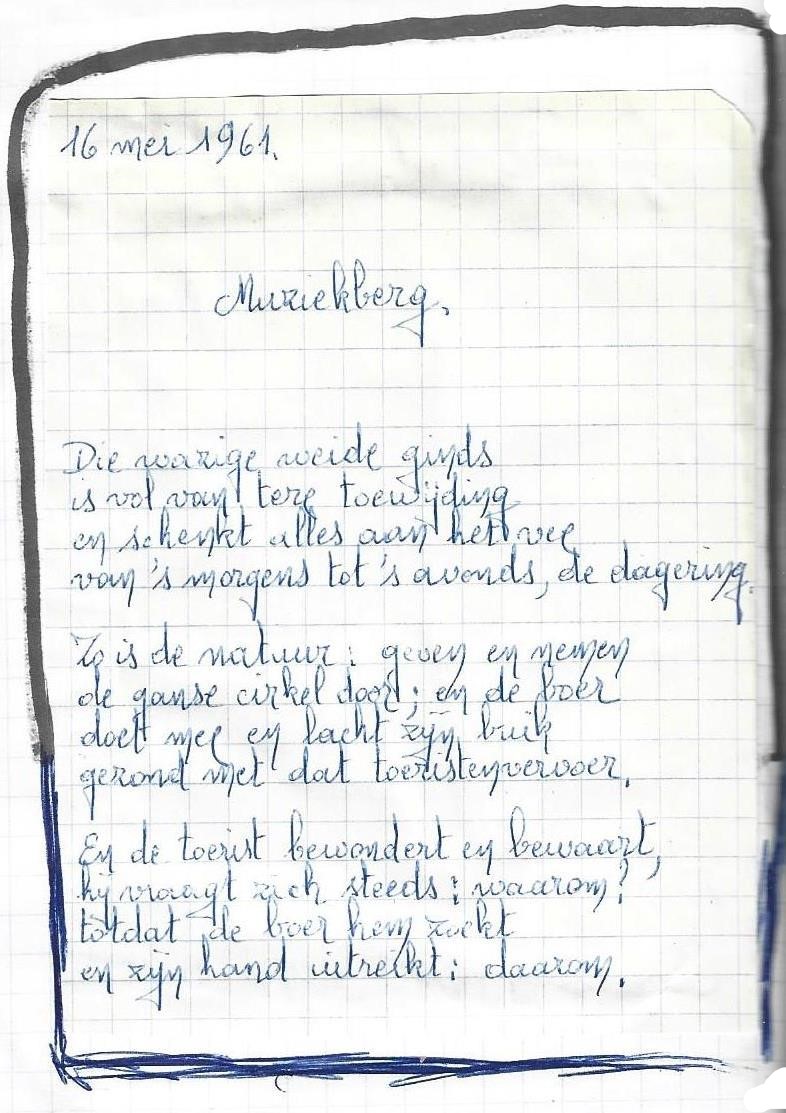 16 mei 1961.
Muziekberg.
Die wazige weide ginds
is vol van tere toewijding
en schenkt alles aan het vee
van 's morgens tot 's avonds, de dagering.
Zo is de natuur: geven en nemen
de ganse cirkel door; en de boer
doet mee en lacht zijn buik
gerond met dat toeristenvervoer.
En de toerist bewondert en bewaart,
hij vraagt zich steeds: waarom?
totdat de boer hem zoekt
en zijn hand uitreikt: daarom.